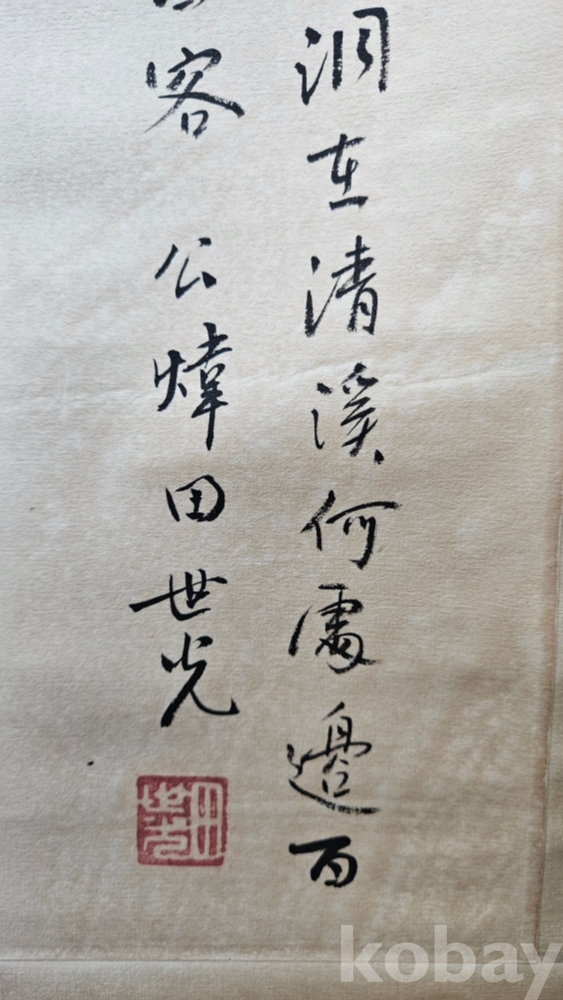 洞在清溪何處邊百
客 公煒田世光
田世光
kobay